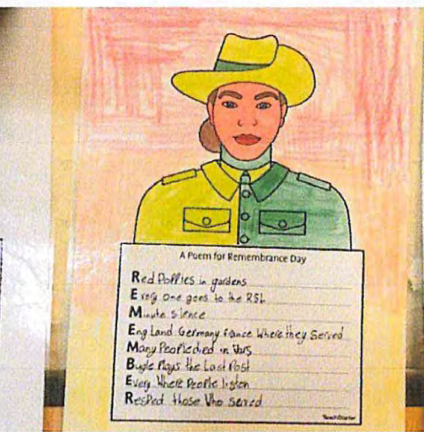 A Poem for Remembrance Day
Red Poppies in gardens
Every one goes to the RSL
Minute silence
England Germany france Where they Served
Many People died in Wars
Bugle Plays the Last Post
Every Where People listen
Respect those Who served
TeachStarter